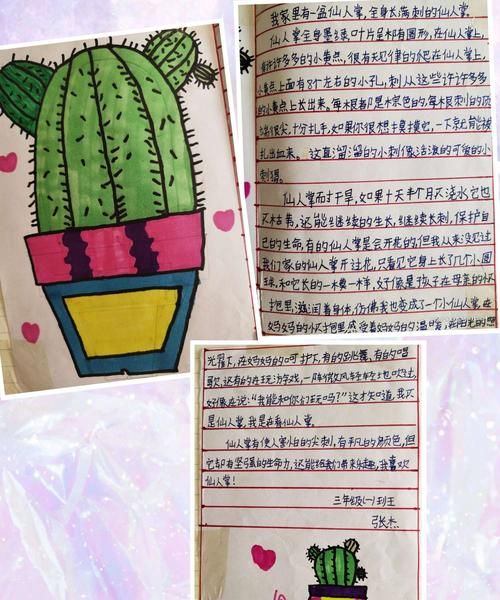 我家里有一盆仙人掌,全身长满刺的仙人掌。
仙人掌全身墨绿,叶片呈椭圆形,在仙人掌上,
有许许多多的小黄点,很有规律的爬在仙人掌上,
小黄点上面有8个左右的小孔,刺从这些许许多多
的小黄点上长出来,每根都是棕色的,每根刺的顶
尖很尖,十分扎手,如果你很想摸摸它,一下就能被
扎出血来。这直溜溜的小刺像活泼的可爱的小
刺猬。
仙人掌耐寸干旱,如果十天半个月不浇水它也
不枯萎,还能继续的生长,继续长刺,保护自
己的生命,有的仙人掌是会开花的,但我从来没见过
我们家的仙人掌开过花,只看见它身上长了几个小圆
球,和它长的一模一样,好像是孩子在母亲的怀
抱里,滋润着身体,仿佛我也变成了一个小仙人掌,在
妈妈的怀抱里感受着妈妈的温暖,在阳光的照
光耀下,在妈妈的呵护下,有的跳舞,有的唱
歌,还有的在玩游戏,一阵微风轻轻地吹过,
好像在说:“我能和你们玩吗?”这才知道,我不
是仙人掌,我是在看仙人掌。
仙人掌有使人害怕的尖刺,有平凡的颜色,但
它却有坚强的生命力,还能给我们带来乐趣,我喜欢
仙人掌!
三年级(一)班王
弓长杰